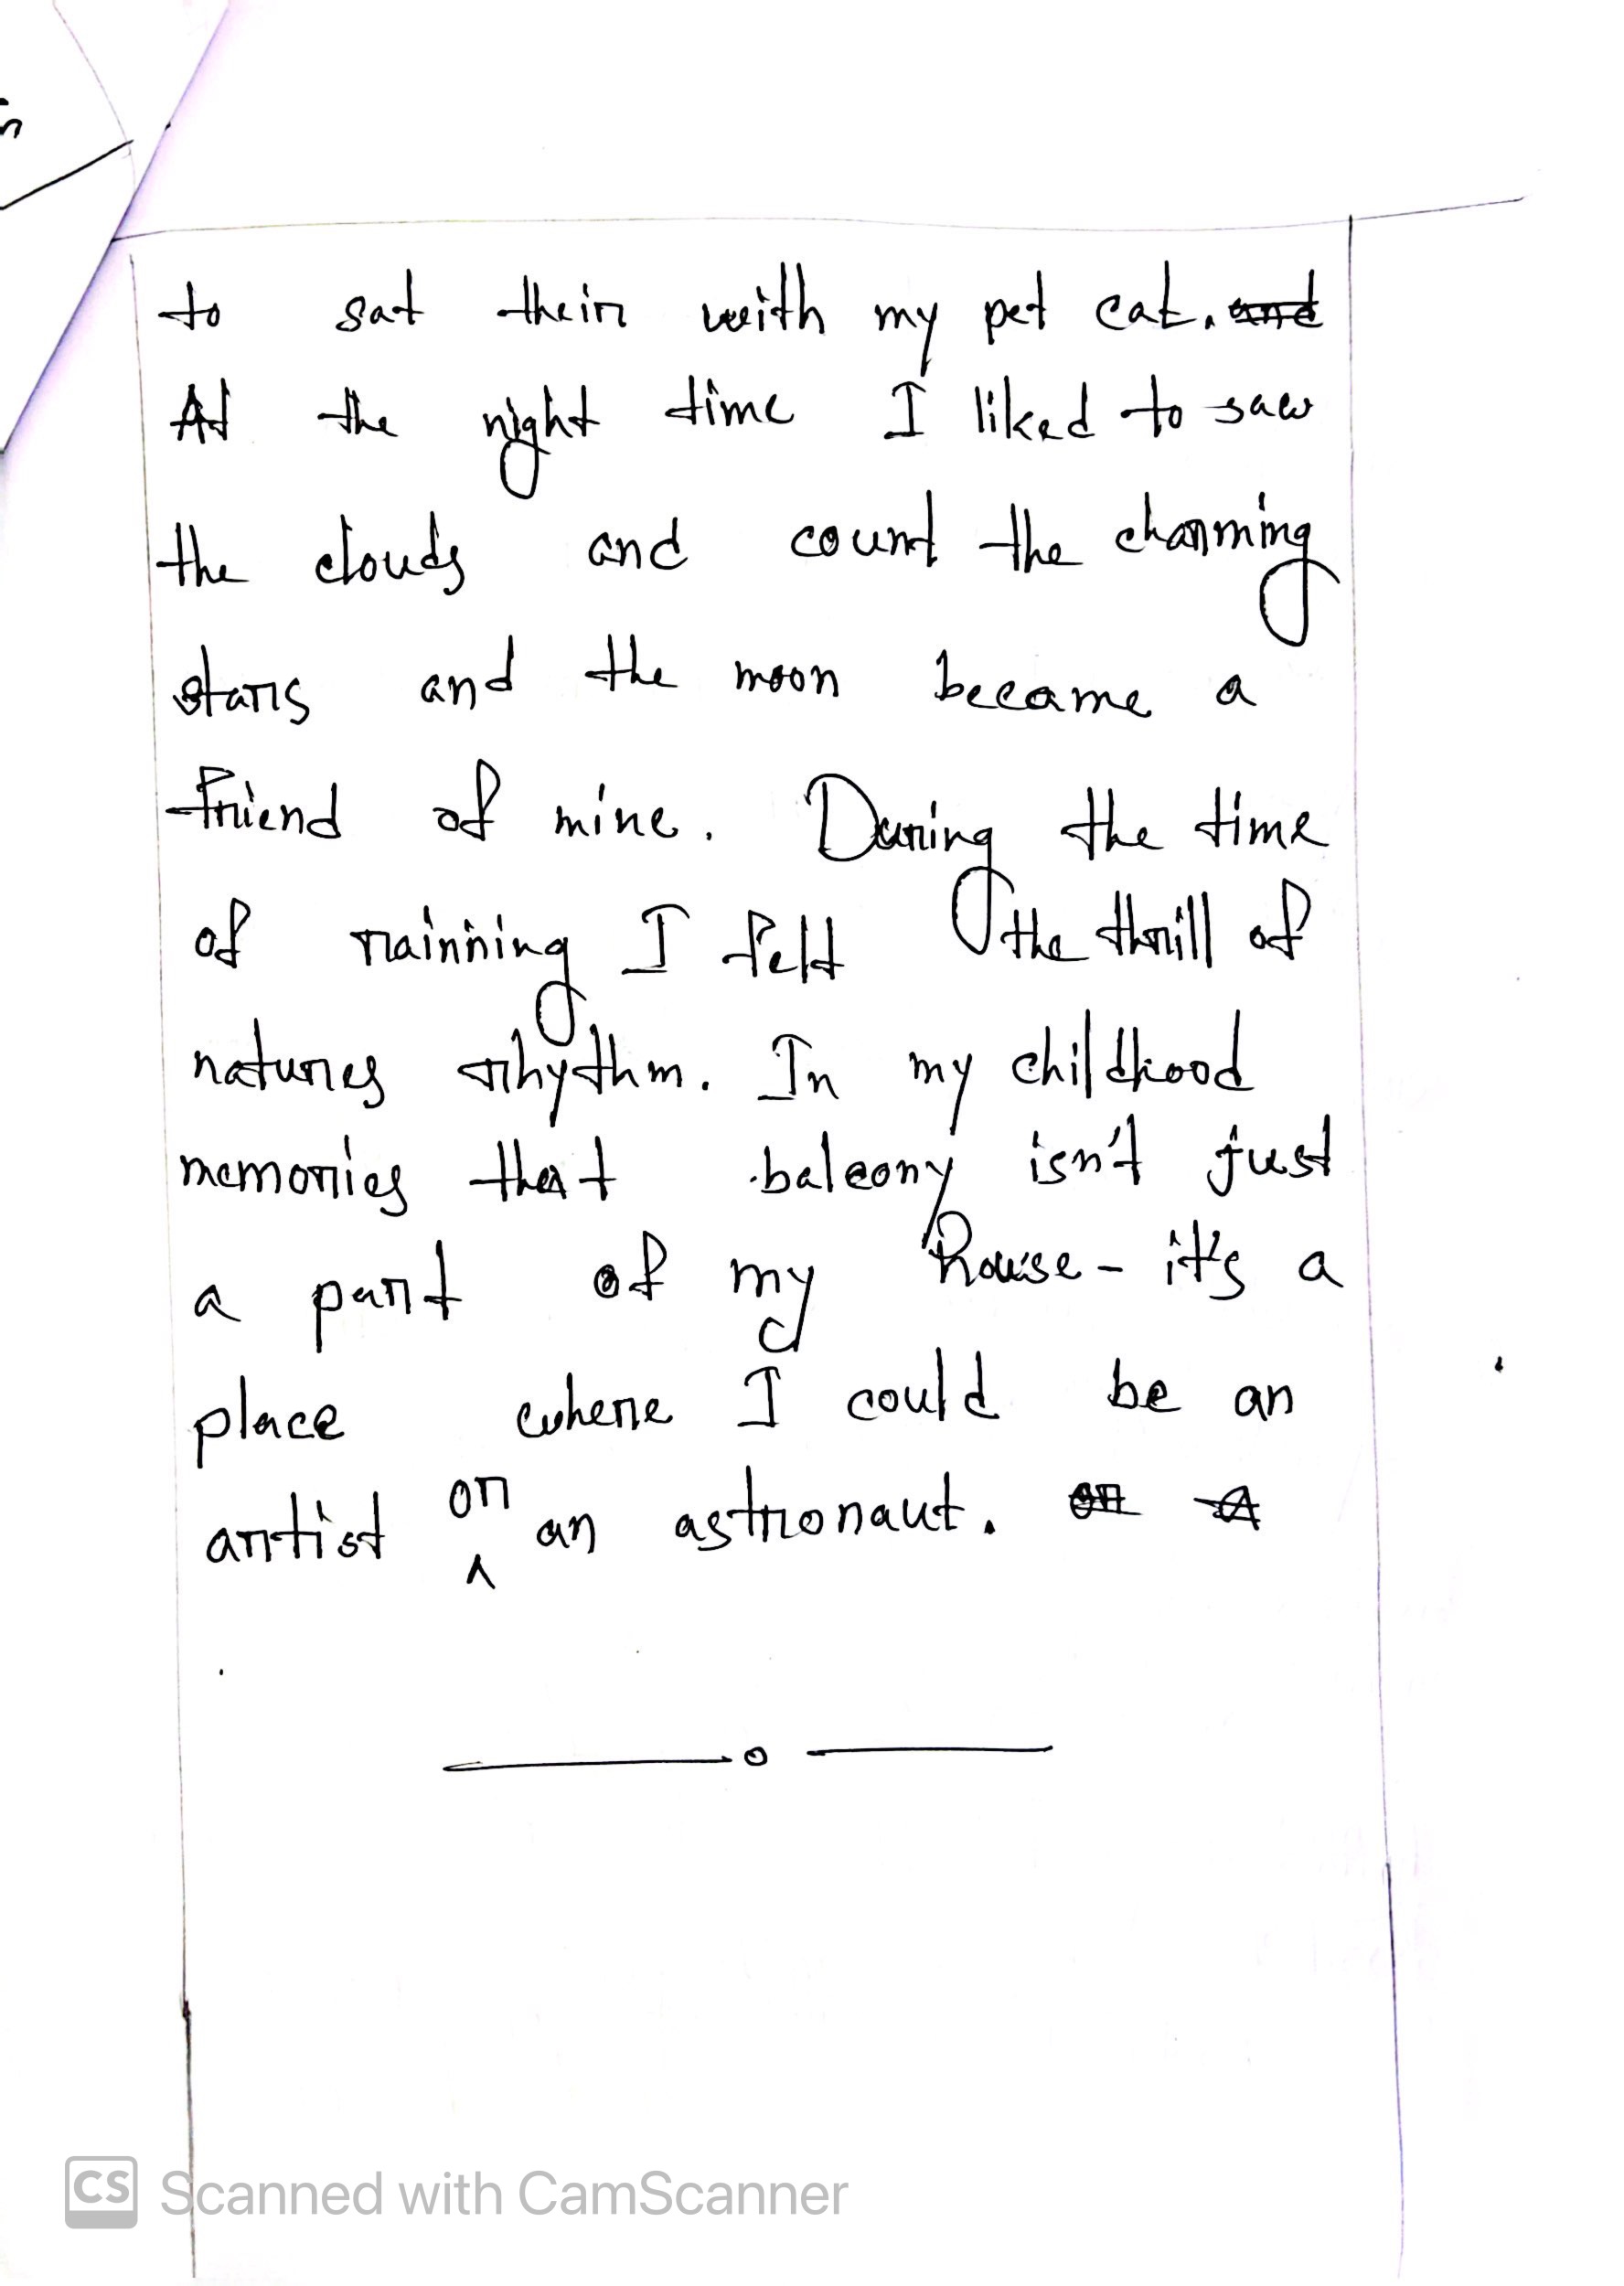 to sat their with my pet cat. and
At the night time I liked to saw
the clouds and count the charming
stars and the moon became a
friend of mine. During the time
of rainning I felt the thrill of
natures rhythm. In my childhood
memories that balcony isn't just
a part of my house - it's a
place where I could be an
artist or an astronaut. or A
CS Scanned with CamScanner